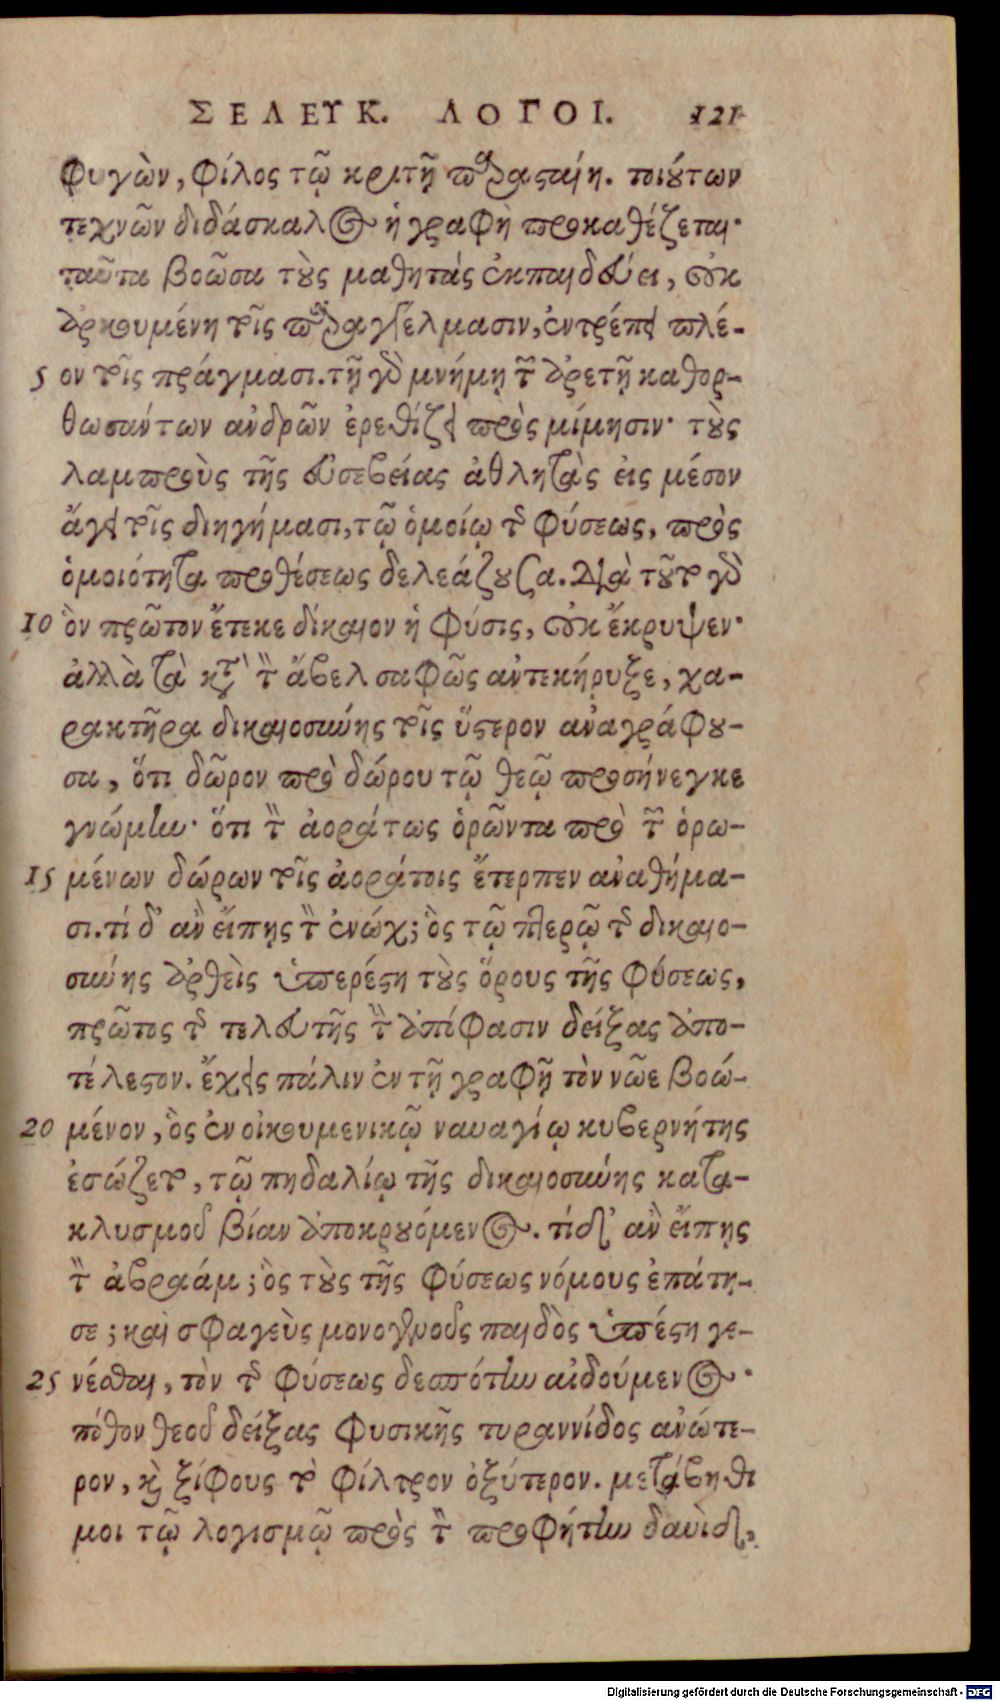 ΣΕΛΕΥΚ. ΛΟΓΟΙ. 121
φυγὼν, φίλος τῷ κριτῇ παραςαίη. τοιούτων
τεχνῶν διδάσκαλος ἡ γραφὴ προκαθέζεται·
ταῦτα βοῶσα τοὺς μαθητὰς ἐκπαιδεύει, οὐκ
ἀρκουμένη τοῖς παραγγέλμασιν, ἐντρέπει πλέ-
5 ον τοῖς πράγμασι. τῇ γὰρ μνήμῃ τῶν ἀρετῇ κατορ-
θωσάντων ἀνδρῶν ἐρεθίζει πρὸς μίμησιν· τοὺς
λαμπροὺς τῆς εὐσεβείας ἀθλητὰς εἰς μέσον
ἄγει τοῖς διηγήμασι, τῷ ὁμοίῳ τῆς φύσεως, πρὸς
ὁμοιότητα προθέσεως δελεάζουσα. Διὰ τοῦτο γὰρ
10 ὃν πρῶτον ἔτεκε δίκαιον ἡ φύσις, οὐκ ἔκρυψεν·
ἀλλὰ τὰ κατὰ τὸν ἄβελ σαφῶς ἀντεκήρυξε, χα-
ρακτῆρα δικαιοσύνης τοῖς ὕςερον ἀναγράφου-
σα, ὅτι δῶρον πρὸ δώρου τῷ θεῷ προσήνεγκε
γνώμην· ὅτι τὸν ἀοράτως ὁρῶντα πρὸ τῶν ὁρω-
15 μένων δώρων τοῖς ἀοράτοις ἔτερπεν ἀναθήμα-
σι. τί δ' ἂν εἴπῃς τὸν ἐνώχ; ὃς τῷ πτερῷ τῆς δικαιο-
σύνης ἀρθεὶς ὑπερέβη τοὺς ὅρους τῆς φύσεως,
πρῶτος τῆς τελευτῆς τὴν ἀπόφασιν δείξας ἀπο-
τέλεςον. ἔχεις πάλιν ἐν τῇ γραφῇ τὸν νῶε βοώ-
20 μένον, ὃς ἐν οἰκουμενικῷ ναυαγίῳ κυβερνήτης
ἐσώζετο, τῷ πηδαλίῳ τῆς δικαιοσύνης κατα-
κλυσμοῦ βίαν ἀποκρουόμενος. τί δ' ἂν εἴπῃς
τὸν ἀβραάμ; ὃς τοὺς τῆς φύσεως νόμους ἐπάτη-
σε; καὶ σφαγεὺς μονογενοῦς παιδὸς ὑπέςη γε-
25 νέσθαι, τὸν τῆς φύσεως δεσπότην αἰδούμενος·
πόθον θεοῦ δείξας φυσικῆς τυραννίδος ἀνώτε-
ρον, καὶ ξίφους τὸ φίλτρον ὀξύτερον. μετάβηθι
μοι τῷ λογισμῷ πρὸς τὸν προφήτην δαυὶδ,
Digitalisierung gefördert durch die Deutsche Forschungsgemeinschaft - DFG